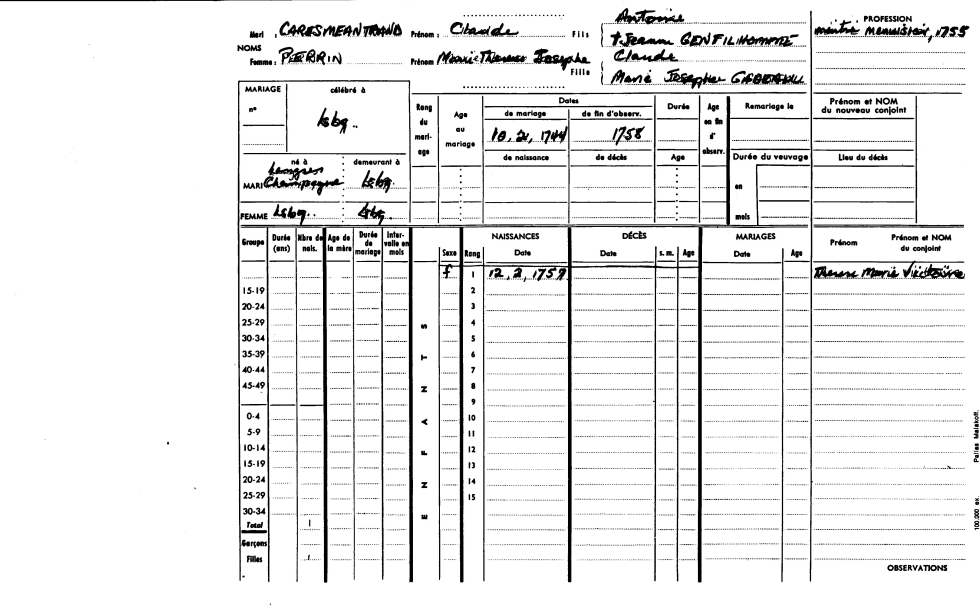 Antoine
PROFESSION
Mari : CARESMEANTRAND Prénom : Claude Fils
maitre menuisier, 1755
† Jeanne GENTILHOMME
NOMS
Claude
Femme : PERRIN Prénom Marie Therese Josephe Fille
Marie Josephe
MARIAGE célébré à
n° Lsbg.
Rang du mariage
Age au mariage
Dates
de mariage de fin d'observ.
1744 1758
de naissance de décès
Durée
Age
Age en fin d' observ.
Remariage le
Durée du veuvage
en
mois
Prénom et NOM du nouveau conjoint
Lieu du décès
né à demeurant à
Langres
MARI Champagne Lsbg.
FEMME Lsbg. Lsbg.
Groupe Durée (ans) Nbre de nais. Age de la mère Durée de mariage Inter-valle en mois
Sexe Rang
NAISSANCES
Date
DÉCÈS
Date s. m. Age
MARIAGES
Date Age
Prénom Prénom et NOM du conjoint
f 1 12, 2, 1757 Therese Marie Victoire
15-19 2
20-24 3
25-29 4
30-34 5
35-39 6
40-44 7
45-49 8
9
0-4 10
5-9 11
10-14 12
15-19 13
20-24 14
25-29 15
30-34
ENFANTS
Total 1
Garçons
Filles 1
OBSERVATIONS
100.000 ex. Pailles Malakoff.